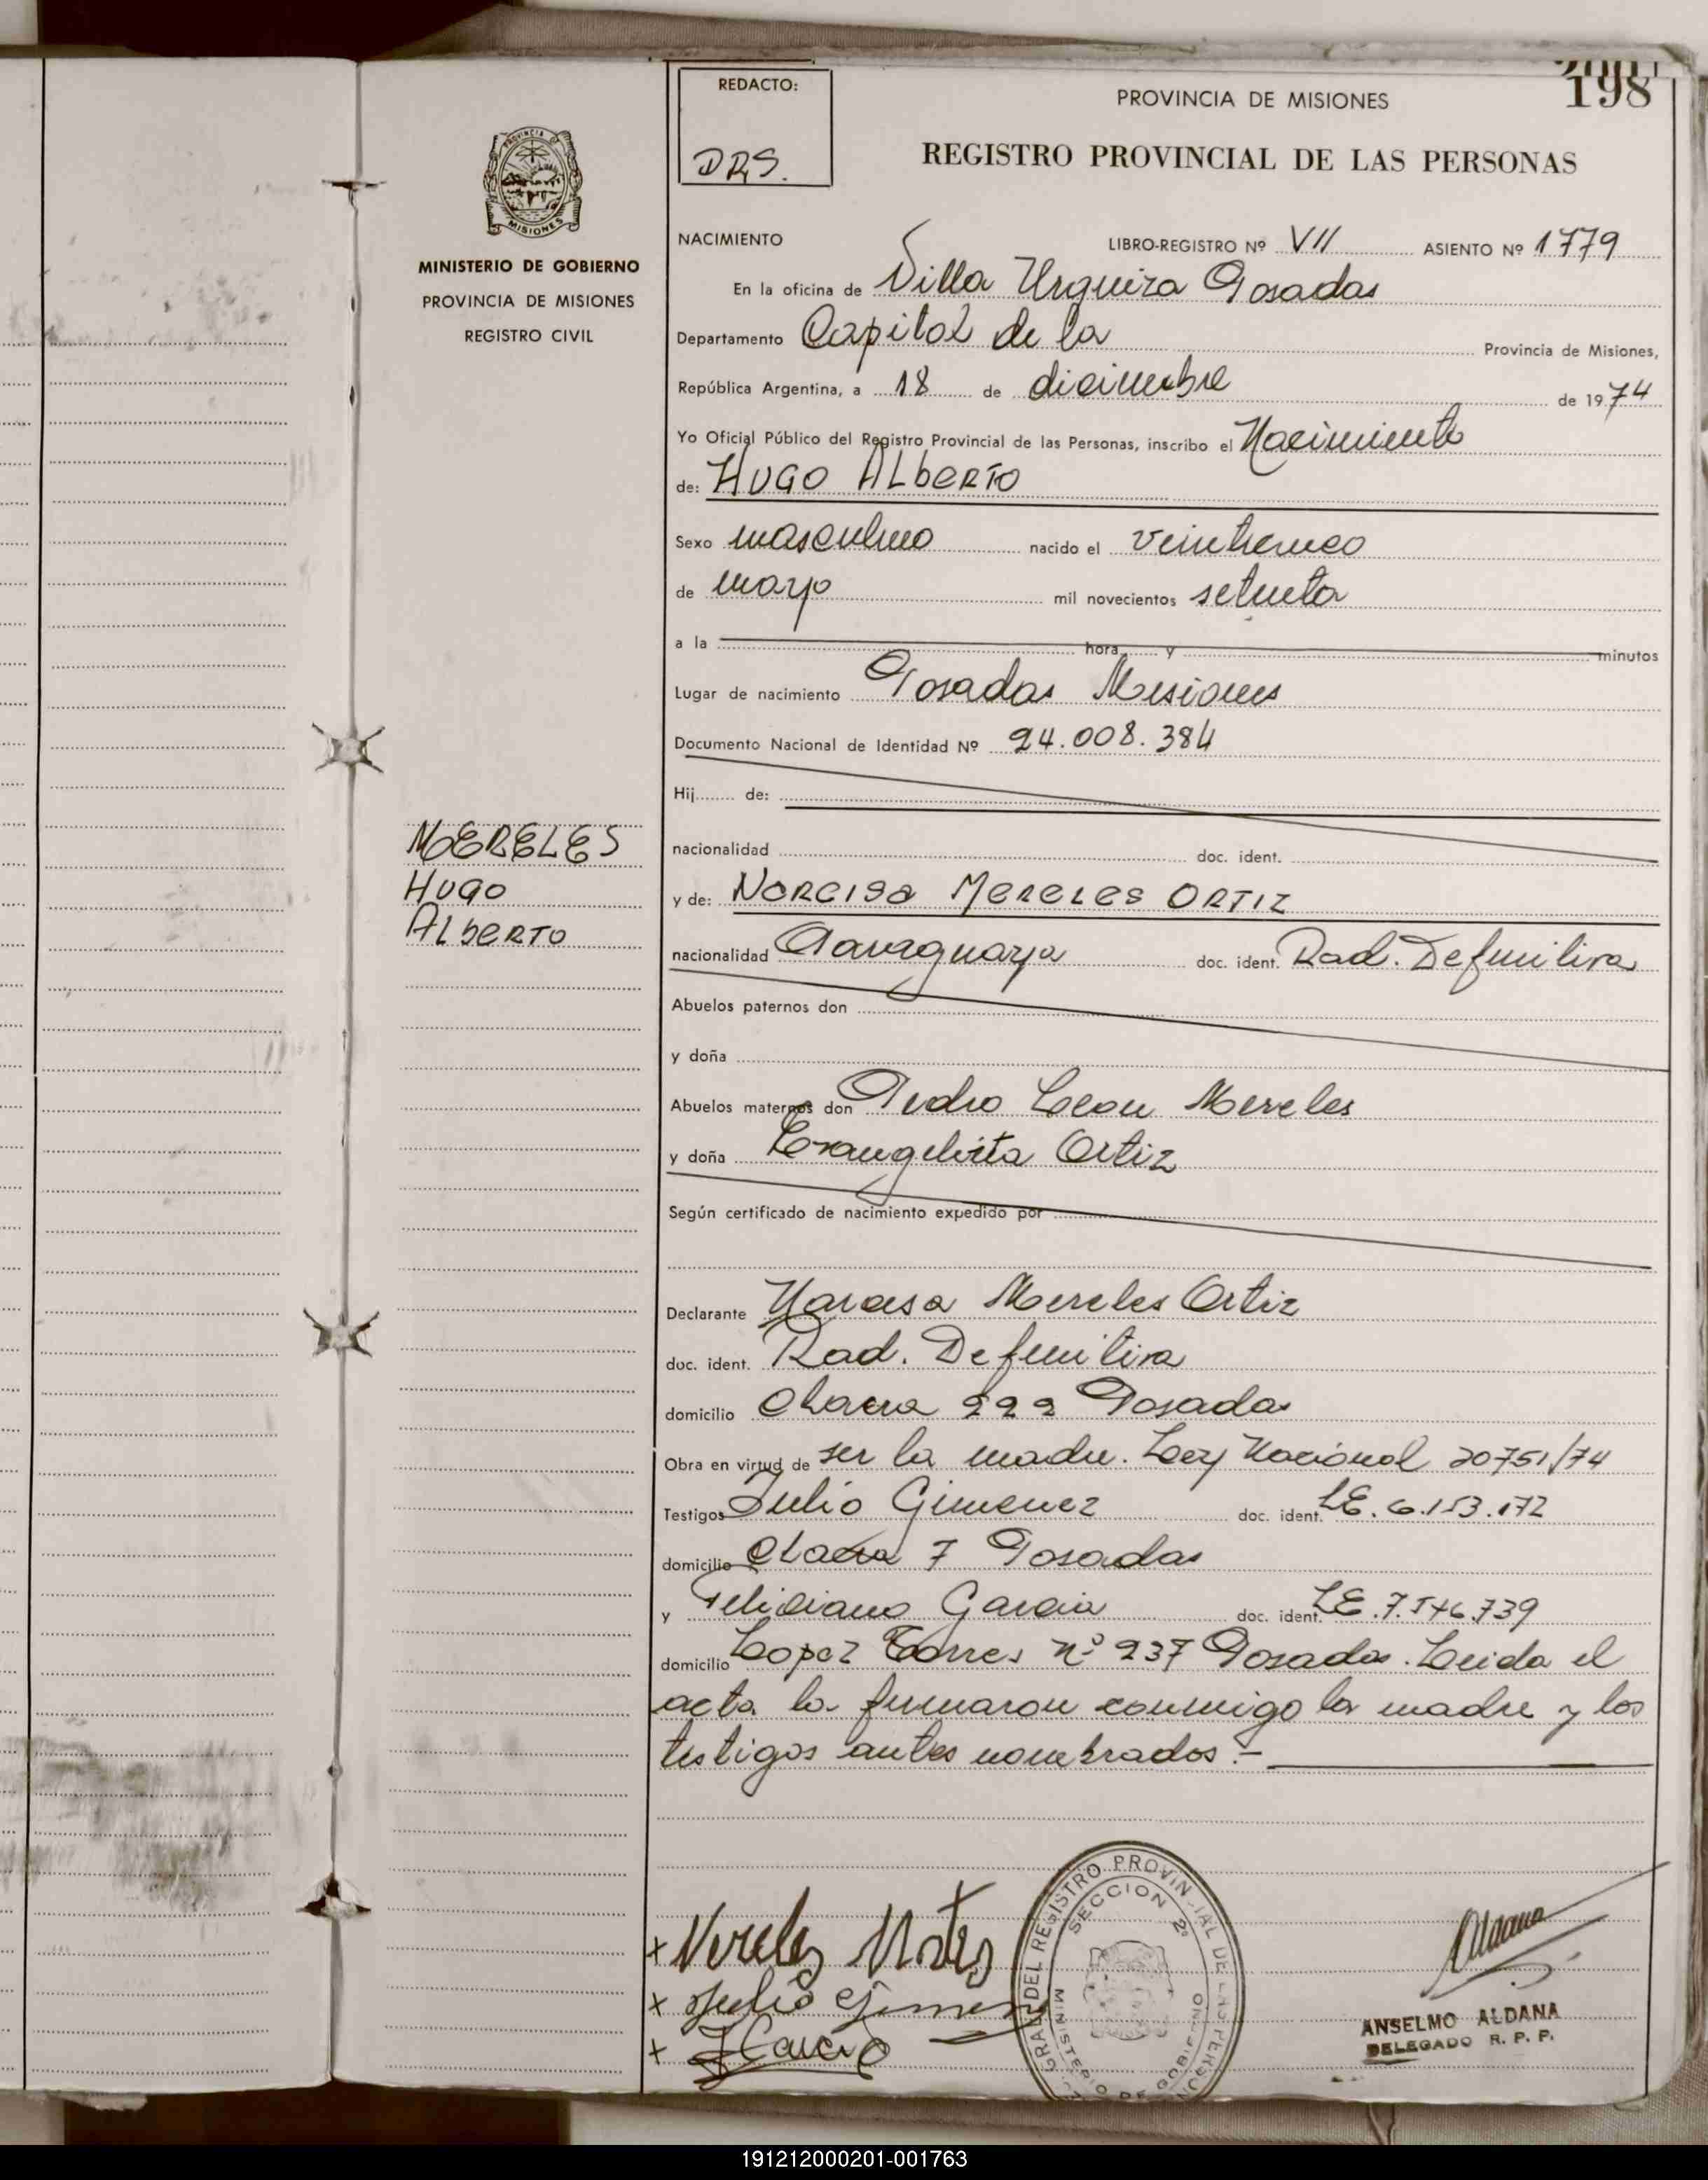 198
REDACTO:
DRS.
PROVINCIA DE MISIONES
REGISTRO PROVINCIAL DE LAS PERSONAS
PROVINCIA DE
MISIONES
MINISTERIO DE GOBIERNO
PROVINCIA DE MISIONES
REGISTRO CIVIL
NACIMIENTO LIBRO-REGISTRO Nº VII ASIENTO Nº 1779
En la oficina de Villa Urquiza Posadas
Departamento Capital de la Provincia de Misiones,
República Argentina, a 18 de diciembre de 1974
Yo Oficial Público del Registro Provincial de las Personas, inscribo el Nacimiento
de: HUGO ALbERTO
Sexo masculino nacido el veinticinco
de mayo mil novecientos setenta
a la hora y minutos
Lugar de nacimiento Posadas Misiones
Documento Nacional de Identidad Nº 24.008.384
Hij de:
nacionalidad doc. ident.
MERELES
HUGO
ALbERTO
y de: NARCISA MERELES ORTIZ
nacionalidad Paraguaya doc. ident. Rad. Definitiva
Abuelos paternos don
y doña
Abuelos maternos don Pedro Leon Mereles
y doña Evangelista Ortiz
Según certificado de nacimiento expedido por
Declarante Narcisa Mereles Ortiz
doc. ident. Rad. Definitiva
domicilio Chacra 222 Posadas
Obra en virtud de ser la madre. Ley Nacional 20751/74
Testigos Julio Gimenez doc. ident. LE. 6.153.172
domicilio Chacra 7 Posadas
y Feliciano Garcia doc. ident. LE. 7.546.739
domicilio Lopez Torres nº 237 Posadas. Leida el
acta la firmaron conmigo la madre y los
testigos antes nombrados.-
x Mereles
x Julio Gimenez
x F Garcia
GRAL. DEL REGISTRO PROVINCIAL DE LAS PERSONAS
SECCION 2º
MINISTERIO DE GOBIERNO
Aldana
ANSELMO ALDANA
DELEGADO R. P. P.
191212000201-001763